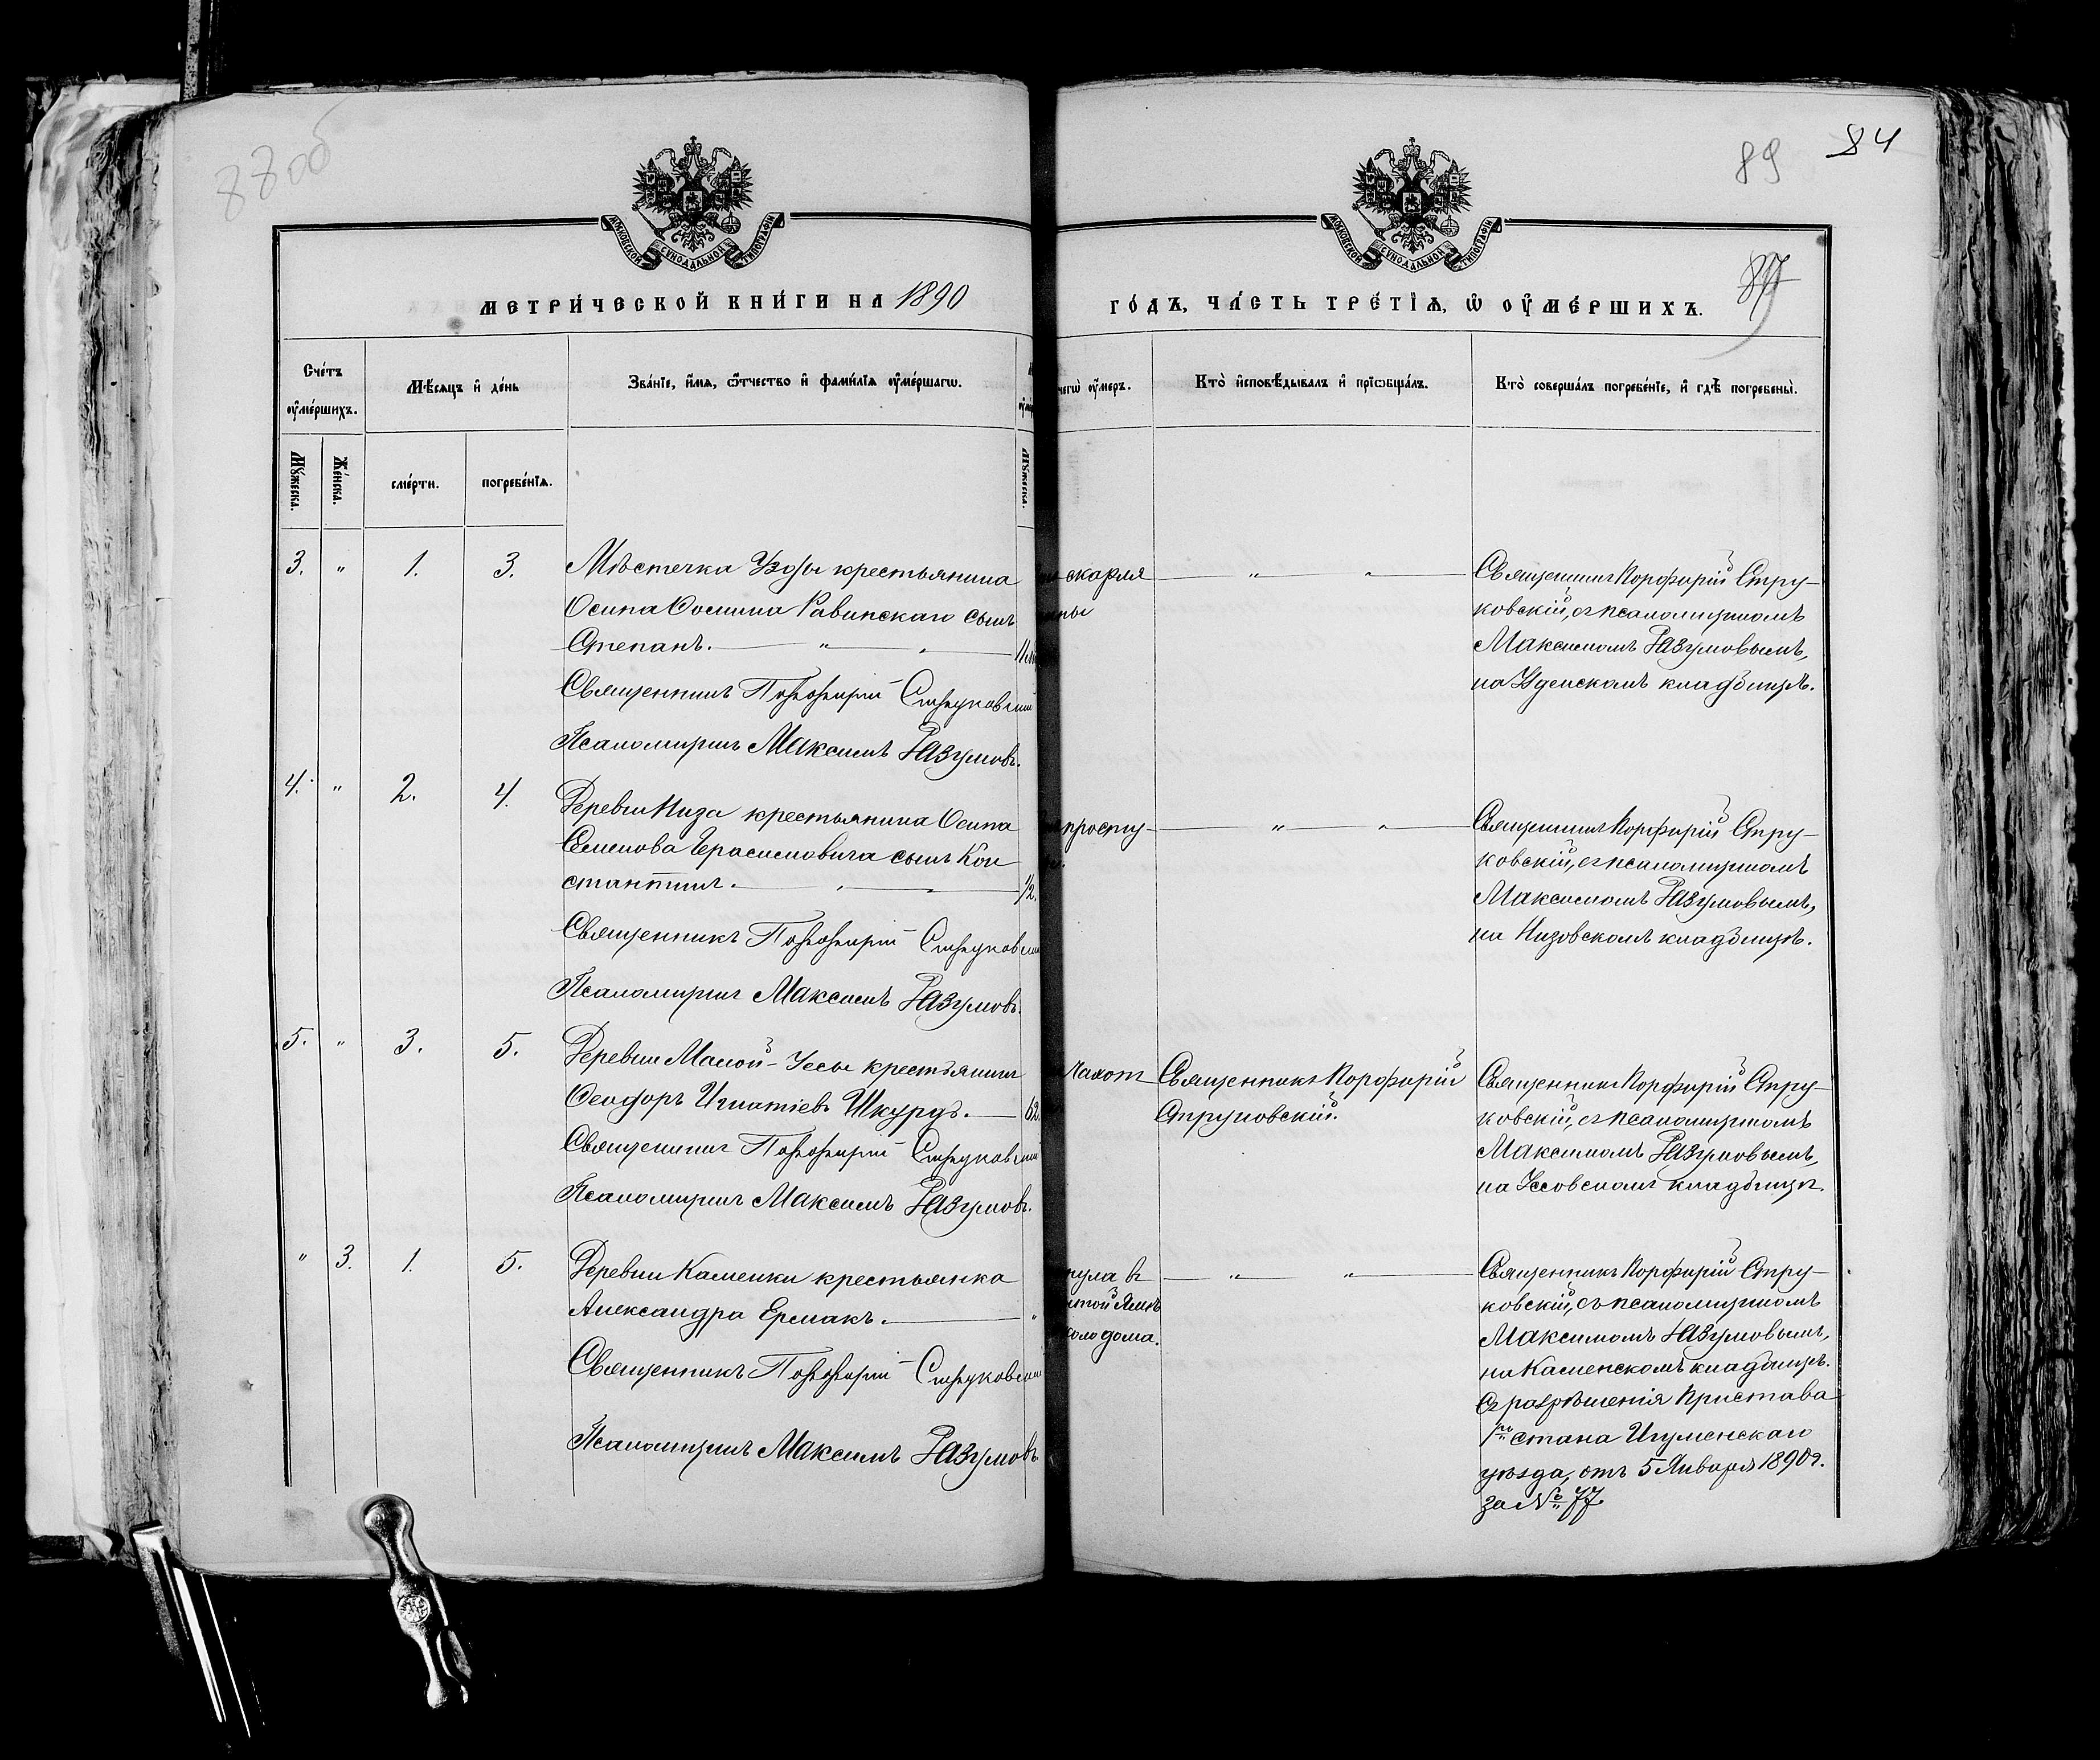 88об
89 84
87
МОСКОВСКОЙ СѴНОДАЛЬНОЙ ТИПОГРАФІИ
МОСКОВСКОЙ СѴНОДАЛЬНОЙ ТИПОГРАФІИ
МЕТРИ́ЧЕСКОЙ КНИ́ГИ НА 1890
ГО́ДЪ, ЧА́СТЬ ТРЕ́ТІѦ, Ѡ҆ ОУ҆МЕ́РШИХЪ.
Сче́тъ оу҆ме́ршихъ.
Мѣ́сяцъ и҆ де́нь
Зва́нїе, и҆́мѧ, ѻ҆́тчество и҆ фами́лїѧ оу҆ме́ршагѡ.
чегѡ̀ оу҆́меръ.
Кто̀ и҆сповѣ́дывалъ и҆ прїѡбща́лъ.
Кто̀ соверша́лъ погребе́нїе, и҆ гдѣ̀ погребены̀.
Мꙋ́жеска.
Же́нска.
сме́рти.
погребе́нїѧ.
Мꙋ́жеска.
3. " 1. 3. Мѣстечка Узды крестьянина
Осипа Осипова Равинскаго сынъ
Степанъ. " "
Священникъ Порфирій Струковскій
Псаломщикъ Максимъ Разумовъ.
скарля " "
ны
Священникъ Порфирій Стру-
ковскій, съ псаломщикомъ
Максимомъ Разумовымъ,
на Узденскомъ кладбищѣ.
4. " 2. 4. Деревни Низа крестьянина Осипа
Семенова Герасимовича сынъ Кон
стантинъ. " " 1/2.
Священникъ Порфирій Струковскій
Псаломщикъ Максимъ Разумовъ.
просту- " "
Священникъ Порфирій Стру-
ковскій, съ псаломщикомъ
Максимомъ Разумовымъ,
на Низовскомъ кладбищѣ.
5. " 3. 5. Деревни Малой-Уссы крестьянинъ
Ѳеодоръ Игнатіевъ Шкурдъ. 62.
Священникъ Порфирій Струковскій
Псаломщикъ Максимъ Разумовъ.
чахот Священникъ Порфирій
Струковскій.
Священникъ Порфирій Стру-
ковскій, съ псаломщикомъ
Максимомъ Разумовымъ,
на Уссовскомъ кладбищѣ.
" 3. 1. 5. Деревни Каменки крестьянка
Александра Ермакъ. "
Священникъ Порфирій Струковскій
Псаломщикъ Максимъ Разумовъ
нула въ " "
той Ямѣ
коло дома.
Священникъ Порфирій Стру-
ковскій, съ псаломщикомъ
Максимомъ Разумовымъ,
на Каменскомъ кладбищѣ.
Съ разрѣшенія Пристава
1го стана Игуменскаго
уѣзда, отъ 5 Января 1890 г.
за № 77.